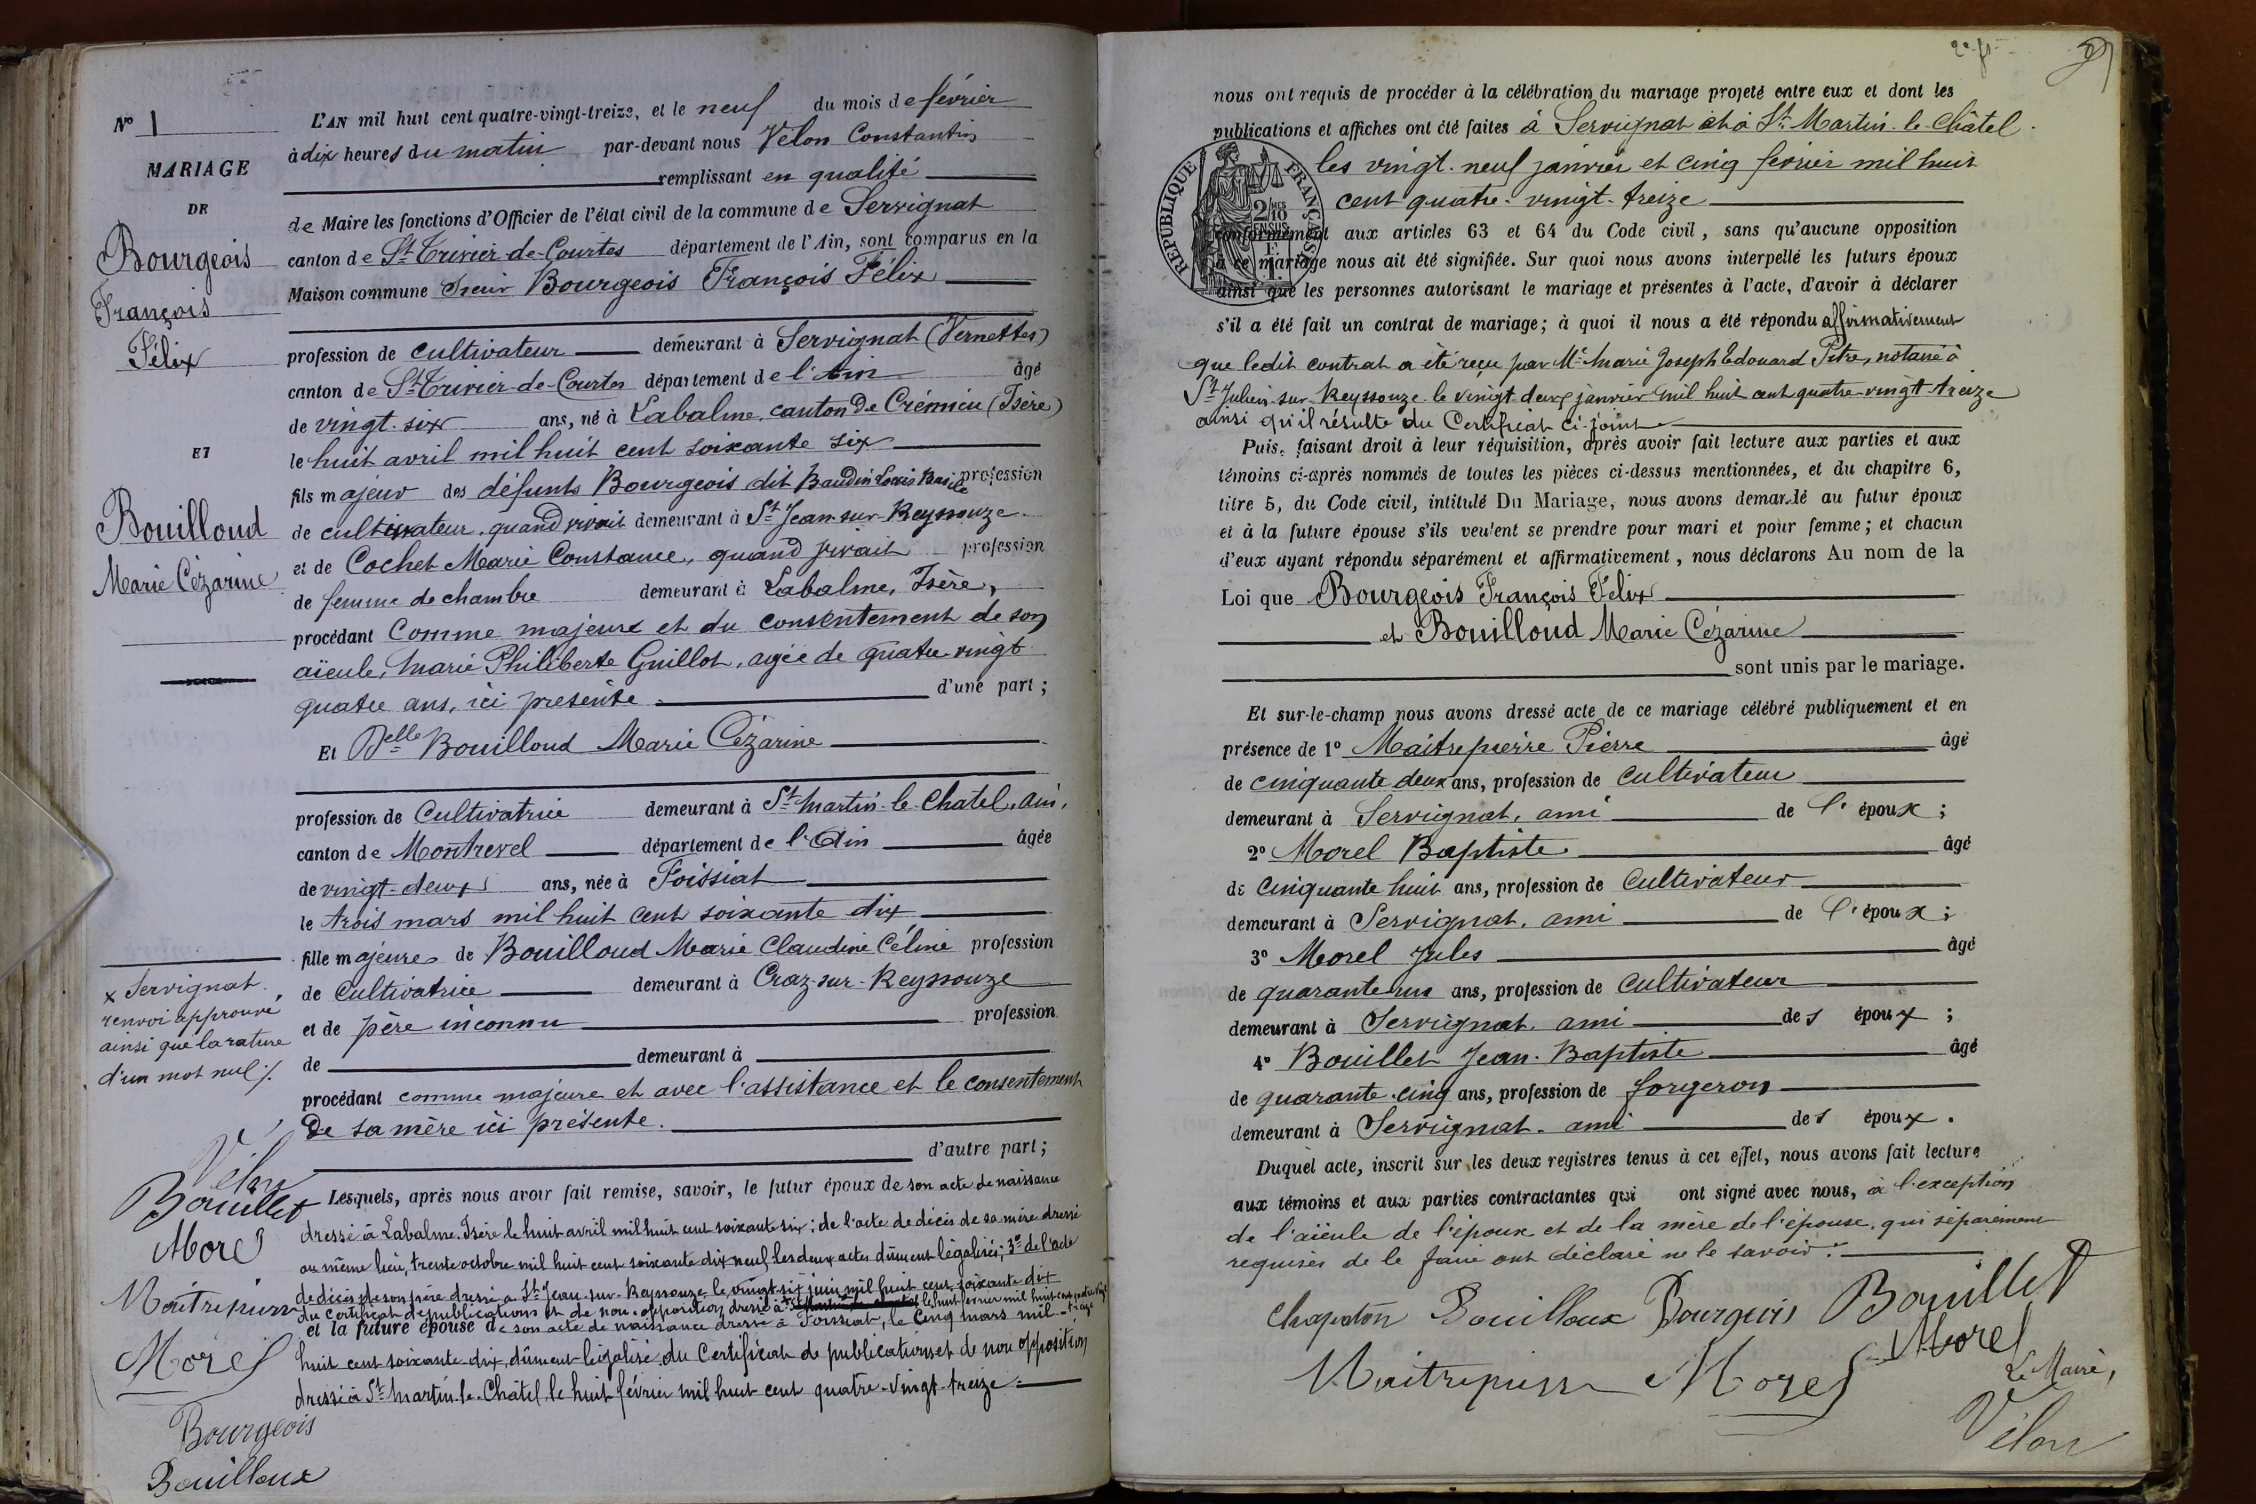 N° 1
MARIAGE
DE
Bourgeois
François
Félix
ET
Bouilloud
Marie Cézarine
x Servignat
renvoi approuvé
ainsi que la rature
d'un mot nul ./.
Vélon
Bouillet
Morel
Maitrepierre
Morel
Bourgeois
Bouilloux
L'AN mil huit cent quatre-vingt-treize, et le neuf du mois de février
à dix heures du matin par-devant nous Vélon Constantin
remplissant en qualité
de Maire les fonctions d'Officier de l'état civil de la commune de Servignat
canton de St Trivier-de-Courtes département de l'Ain, sont comparus en la
Maison commune Sieur Bourgeois François Félix
profession de cultivateur demeurant à Servignat (Vernettes)
canton de St Trivier-de-Courtes département de l'Ain âgé
de vingt-six ans, né à Labalme, canton de Crémieu (Isère)
le huit avril mil huit cent soixante six
fils majeur des défunts Bourgeois dit Baudin Louis Basile profession
de cultivateur, quand vivait demeurant à St Jean-sur-Reyssouze
et de Cochet Marie Constance, quand vivait profession
de femme de chambre demeurant à Labalme, Isère,
procédant comme majeur et du consentement de son
aïeule, Marie Philiberte Guillot, agée de quatre-vingt
quatre ans, ici présente d'une part ;
Et Delle Bouilloud Marie Cézarine
profession de cultivatrice demeurant à St Martin-le-Chatel, Ain,
canton de Montrevel département de l'Ain âgée
de vingt-deux ans, née à Foissiat
le trois mars mil huit cent soixante dix
fille majeure de Bouilloud Marie Claudine Céline profession
de cultivatrice demeurant à Craz-sur-Reyssouze
et de père inconnu profession
de demeurant à
procédant comme majeure et avec l'assistance et le consentement
de sa mère ici présente.
d'autre part ;
Lesquels, après nous avoir fait remise, savoir, le futur époux de son acte de naissance
dressé à Labalme, Isère le huit avril mil huit cent soixante six ; de l'acte de décès de sa mère dressé
au même lieu, trente octobre mil huit cent soixante dix neuf, les deux actes dûment légalisés ; 3° de l'acte
de décès de son père dressé à St Jean-sur-Reyssouze le vingt-six juin mil huit cent soixante dix
du certificat de publications et de non-opposition dressé à x le huit février mil huit cent quatre vingt treize
et la future épouse de son acte de naissance dressé à Foissiat, le cinq mars mil
huit cent soixante-dix, dûment légalisé, du Certificat de publications et de non opposition
dressé à St Martin-le-Châtel le huit février mil huit cent quatre-vingt-treize
2e ft
nous ont requis de procéder à la célébration du mariage projeté entre eux et dont les
publications et affiches ont été faites à Servignat et à St Martin-le-Châtel
les vingt-neuf janvier et cinq février mil huit
cent quatre-vingt-treize
RÉPUBLIQUE FRANÇAISE
conformément aux articles 63 et 64 du Code civil, sans qu'aucune opposition
à ce mariage nous ait été signifiée. Sur quoi nous avons interpellé les futurs époux
ainsi que les personnes autorisant le mariage et présentes à l'acte, d'avoir à déclarer
s'il a été fait un contrat de mariage ; à quoi il nous a été répondu affirmativement
que ledit contrat a été reçu par Me Marie Joseph Edouard Pitre, notaire à
St Julien-sur-Reyssouze le vingt deux janvier mil huit cent quatre-vingt-treize
ainsi qu'il résulte du Certificat ci-joint
Puis, faisant droit à leur réquisition, après avoir fait lecture aux parties et aux
témoins ci-après nommés de toutes les pièces ci-dessus mentionnées, et du chapitre 6,
titre 5, du Code civil, intitulé Du Mariage, nous avons demandé au futur époux
et à la future épouse s'ils veulent se prendre pour mari et pour femme ; et chacun
d'eux ayant répondu séparément et affirmativement, nous déclarons Au nom de la
Loi que Bourgeois François Félix
et Bouilloud Marie Cézarine
sont unis par le mariage.
Et sur-le-champ nous avons dressé acte de ce mariage célébré publiquement et en
présence de 1° Maitrepierre Pierre âgé
de cinquante deux ans, profession de cultivateur
demeurant à Servignat, ami de l'époux ;
2° Morel Baptiste âgé
de cinquante huit ans, profession de cultivateur
demeurant à Servignat, ami de l'époux ;
3° Morel Jules âgé
de quarante un ans, profession de cultivateur
demeurant à Servignat, ami des époux ;
4° Bouillet Jean-Baptiste âgé
de quarante-cinq ans, profession de forgeron
demeurant à Servignat, ami des époux.
Duquel acte, inscrit sur les deux registres tenus à cet effet, nous avons fait lecture
aux témoins et aux parties contractantes qui ont signé avec nous, à l'exception
de l'aïeule de l'époux et de la mère de l'épouse, qui séparément
requises de le faire ont déclaré ne le savoir.
Chapaton Bouilloux Bourgeois Bouillet
Maitrepierre Morel Morel
Le Maire,
Vélon